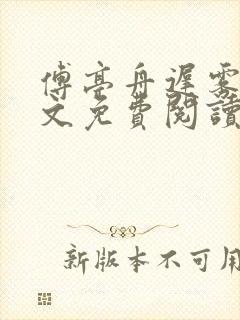 傅亭舟遲雾
文免費閱讀
新版本不可用